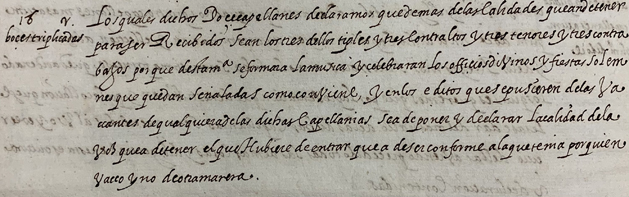 16 v.
boces triplicadas
Los quales dichos Doce capellanes declaramos que demas de las calidades que an de tener
para ser Recibidos sean los tres dellos tiples y tres contraltos y tres tenores y tres contra
bajos porque destamª se formara la musica y celebraran los officios divinos y fiestas solem
nes que quedan señaladas como conviene, y en los editos que se pusieren de las va
cantes de qualquiera de las dichas capellanias sea de poner y declarar la calidad de la
voz que a de tener el que Hubiere de entrar que a de ser conforme a la que tenia por quien
vaco y no de otra manera.